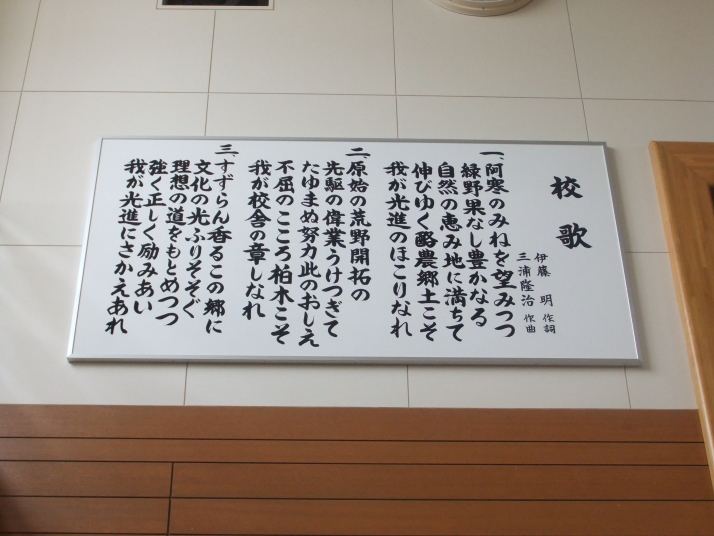 校歌
伊藤 明 作詞
三浦隆治 作曲
一、阿寒のみねを望みつつ
緑野果なし豊かなる
自然の恵み地に満ちて
伸びゆく酪農郷土こそ
我が光進のほこりなれ
二、原始の荒野開拓の
先駆の偉業うけつぎて
たゆまぬ努力此のおしえ
不屈のこころ柏木こそ
我が校舎の章しなれ
三、すずらん香るこの郷に
文化の光ふりそそぐ
理想の道をもとめつつ
強く正しく励みあい
我が光進にさかえあれ